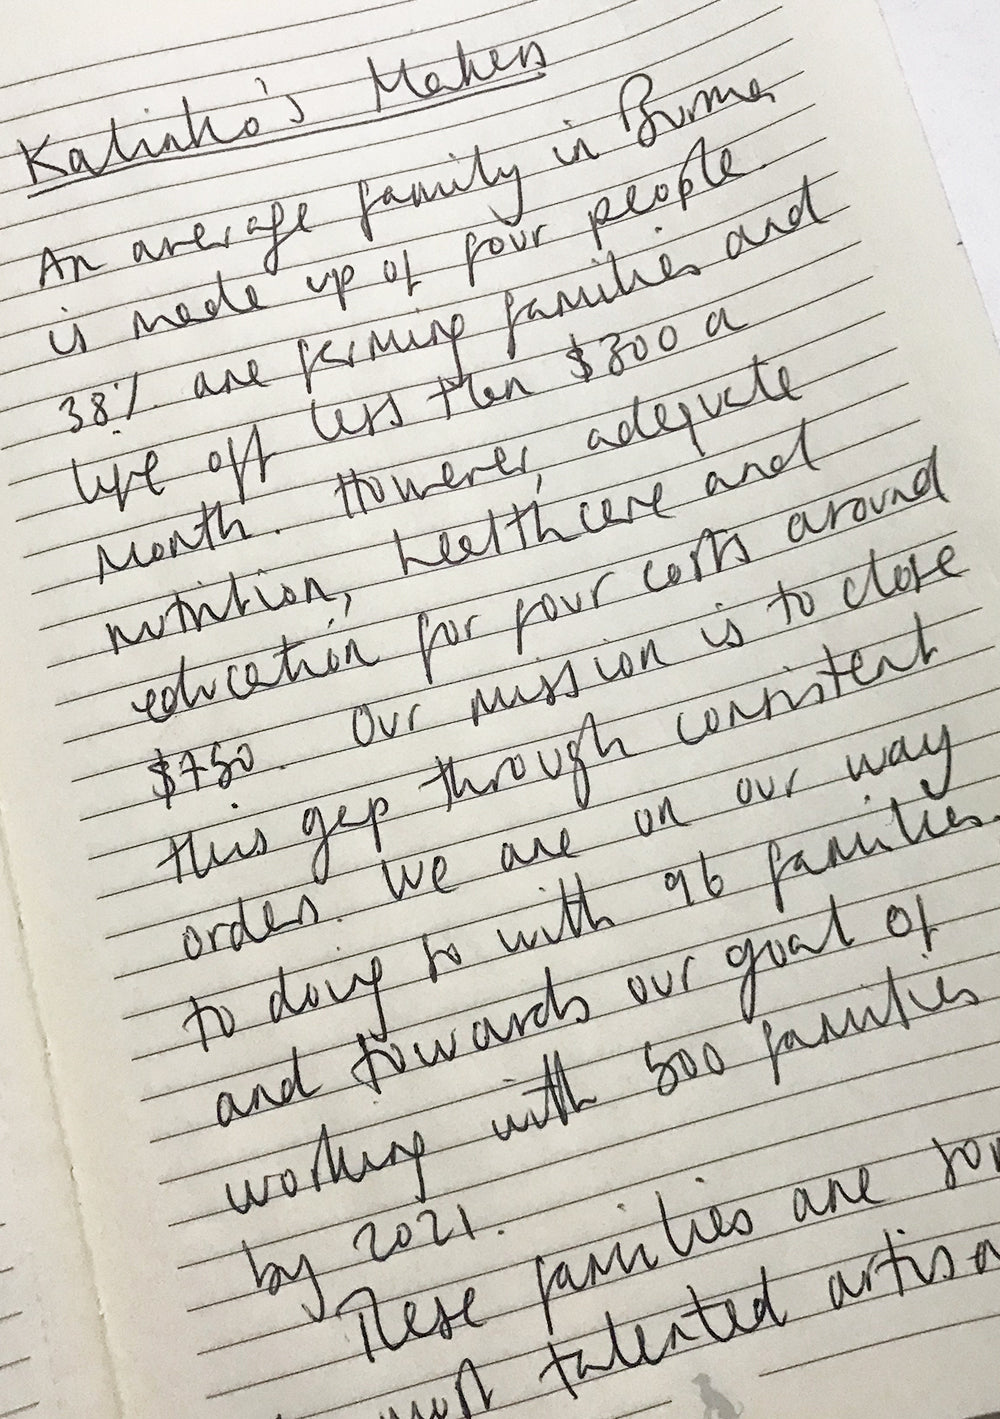 Kalinko's Makers
An average family in Burma
is made up of four people.
38% are farming families and
live off less than $300 a
month. However, adequate
nutrition, healthcare and
education for four costs around
$750. Our mission is to close
this gap through consistent
orders. We are on our way
to doing so with 96 families.
and towards our goal of
working with 500 families
by 2021.
These families are som
most talented artisa